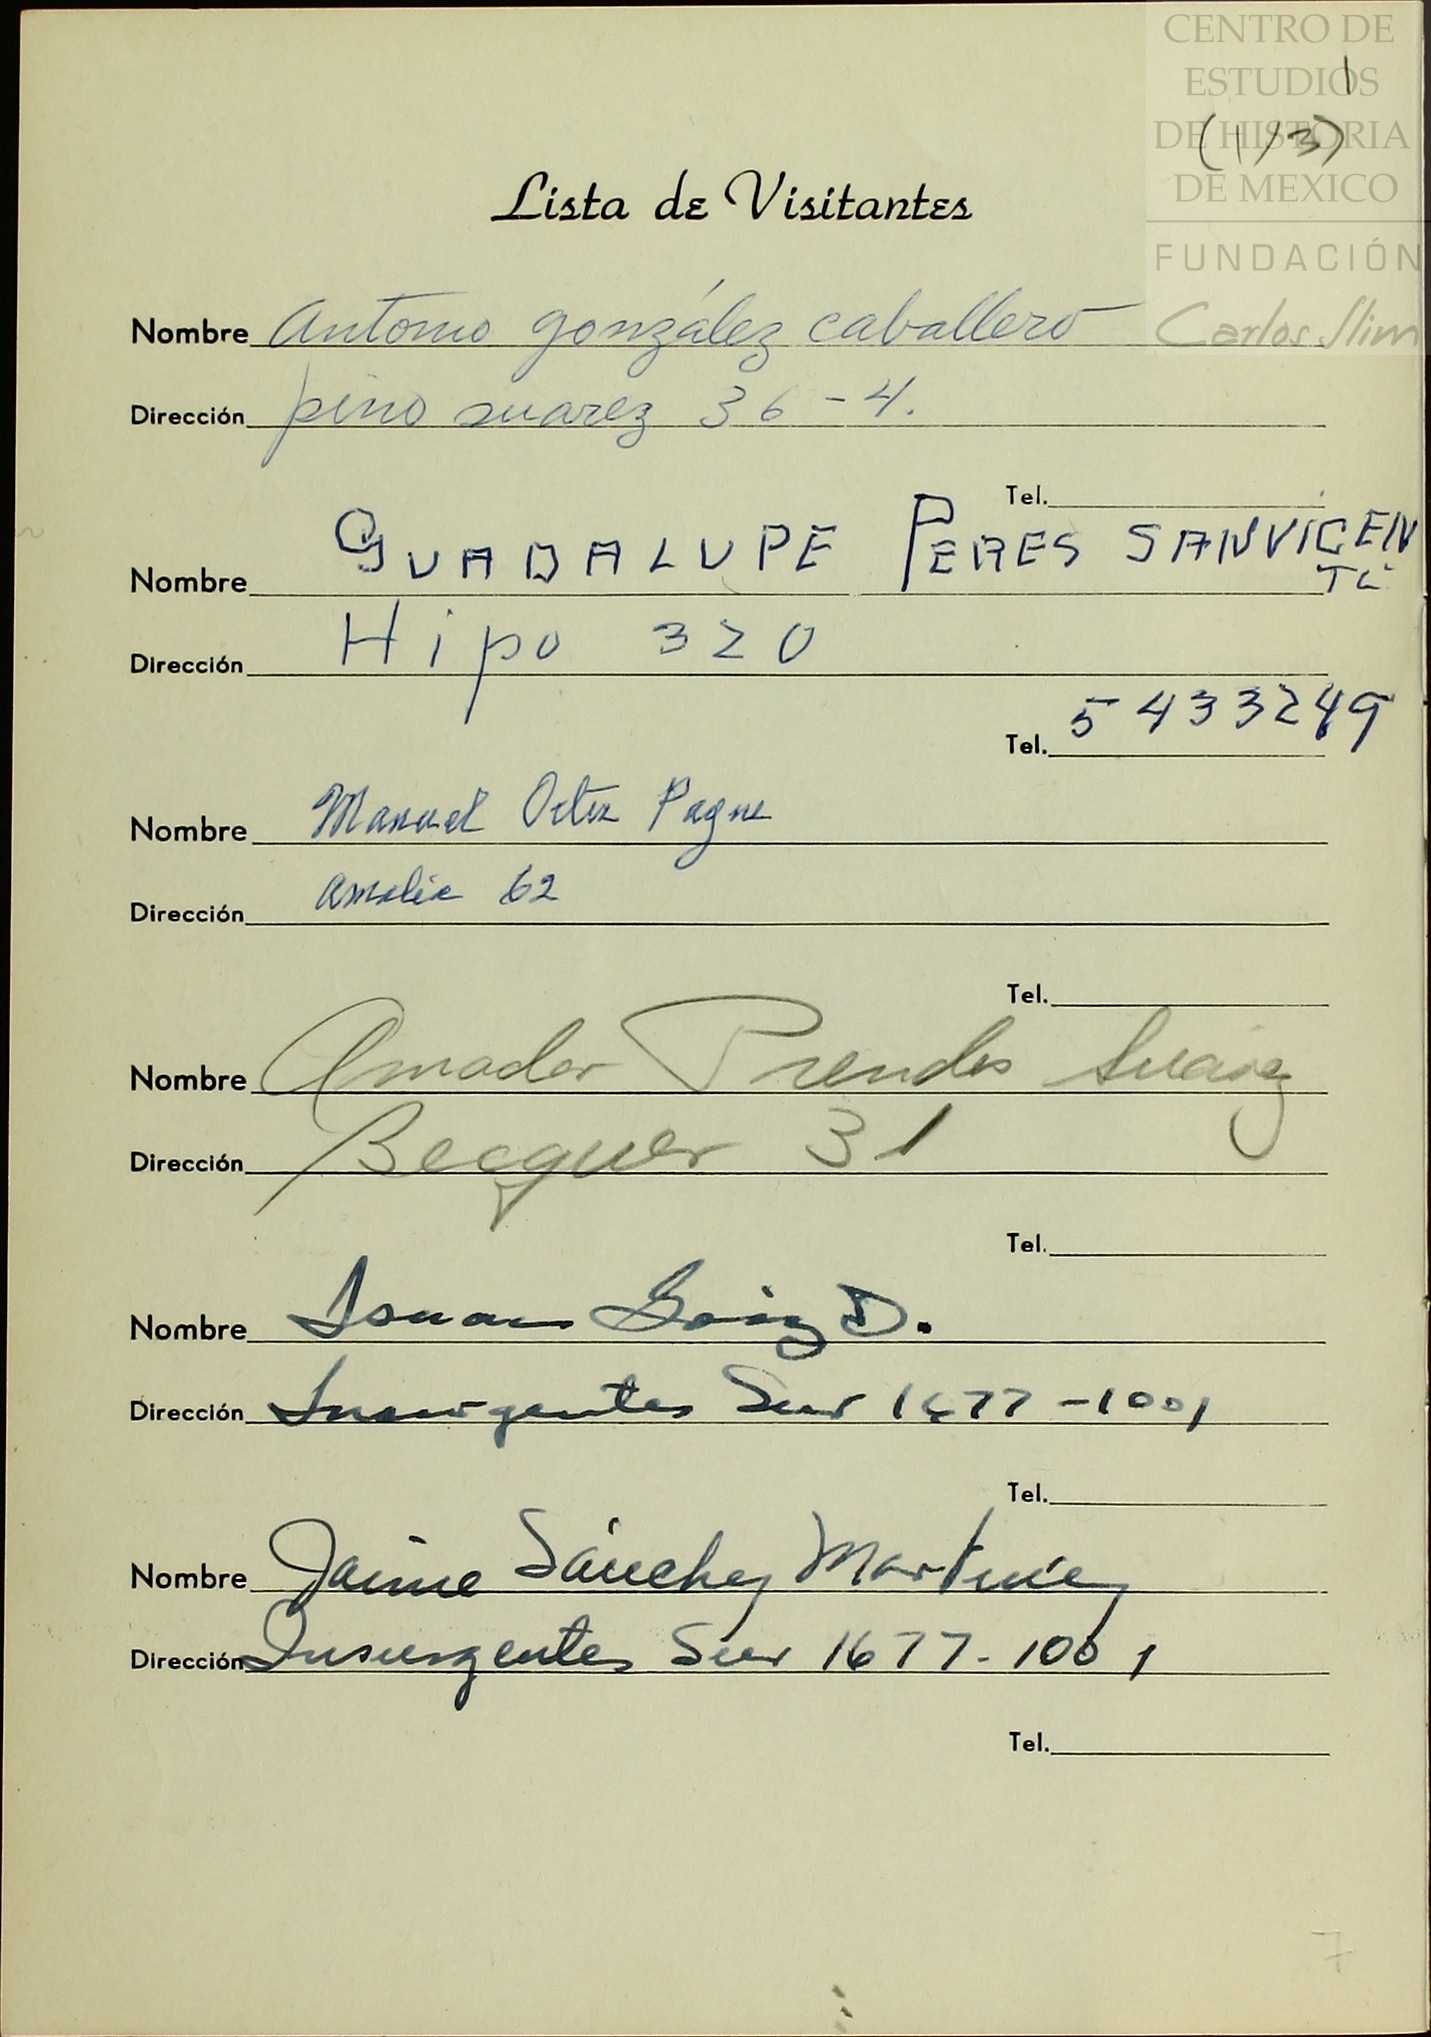 CENTRO DE
ESTUDIOS
DE HISTORIA
DE MEXICO
FUNDACIÓN
Carlos Slim
1
(1/3)
Lista de Visitantes
Nombre Antonio gonzález caballero
Dirección pino suarez 36-4.
Tel.
Nombre GUADALUPE PERES SANVICEN
TE
Dirección Hipo 320
Tel. 5433249
Nombre Manuel Ortiz Pagne
Dirección Amalia 62
Tel.
Nombre Amador Prendes Suárez
Dirección Becquer 31
Tel.
Nombre D.
Dirección Insurgentes Sur 1677-1001
Tel.
Nombre Jaime Sánchez Martínez
Dirección Insurgentes Sur 1677-1001
Tel.
7